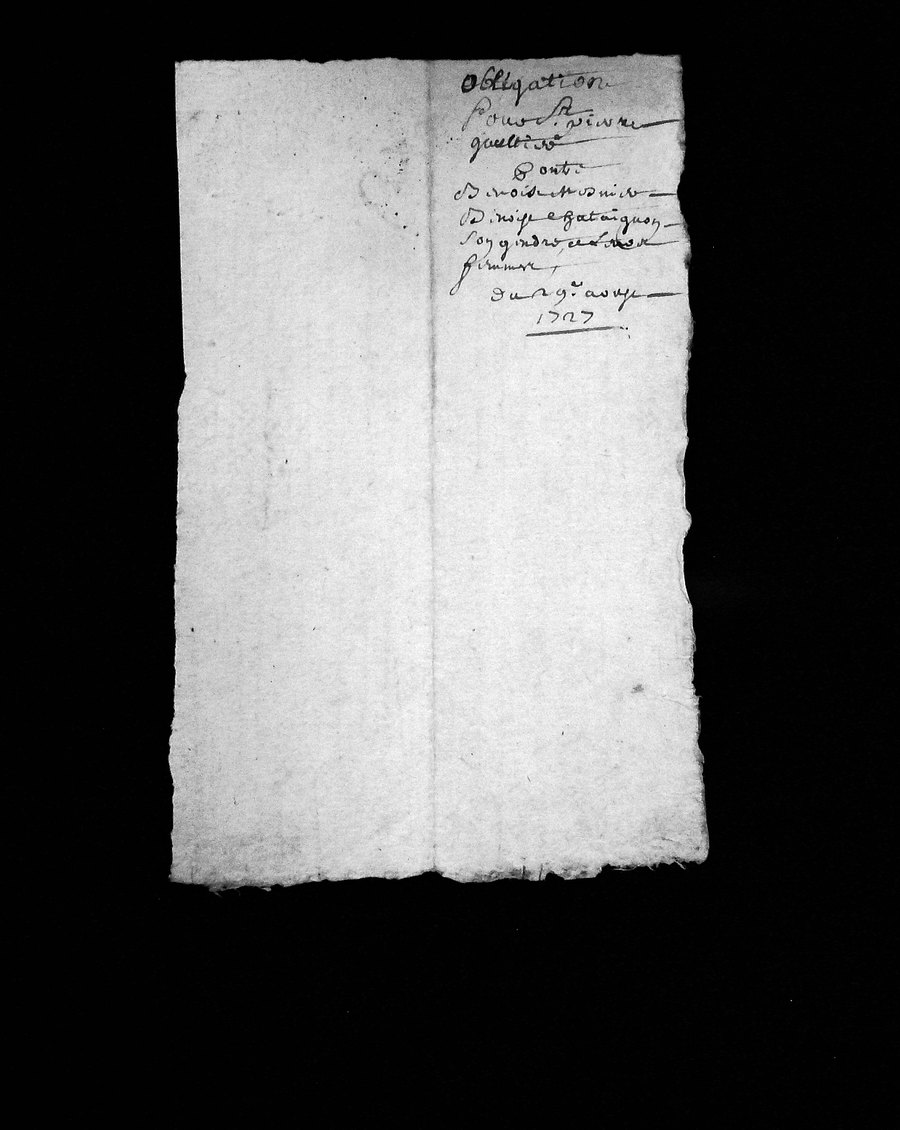 obligation
Pour Sr. pierre
gaultier
Contre
Benoist Mesnier
Benoist Chataignon
son gendre, et leurs
femmes,
Du 29e. aoust
1727